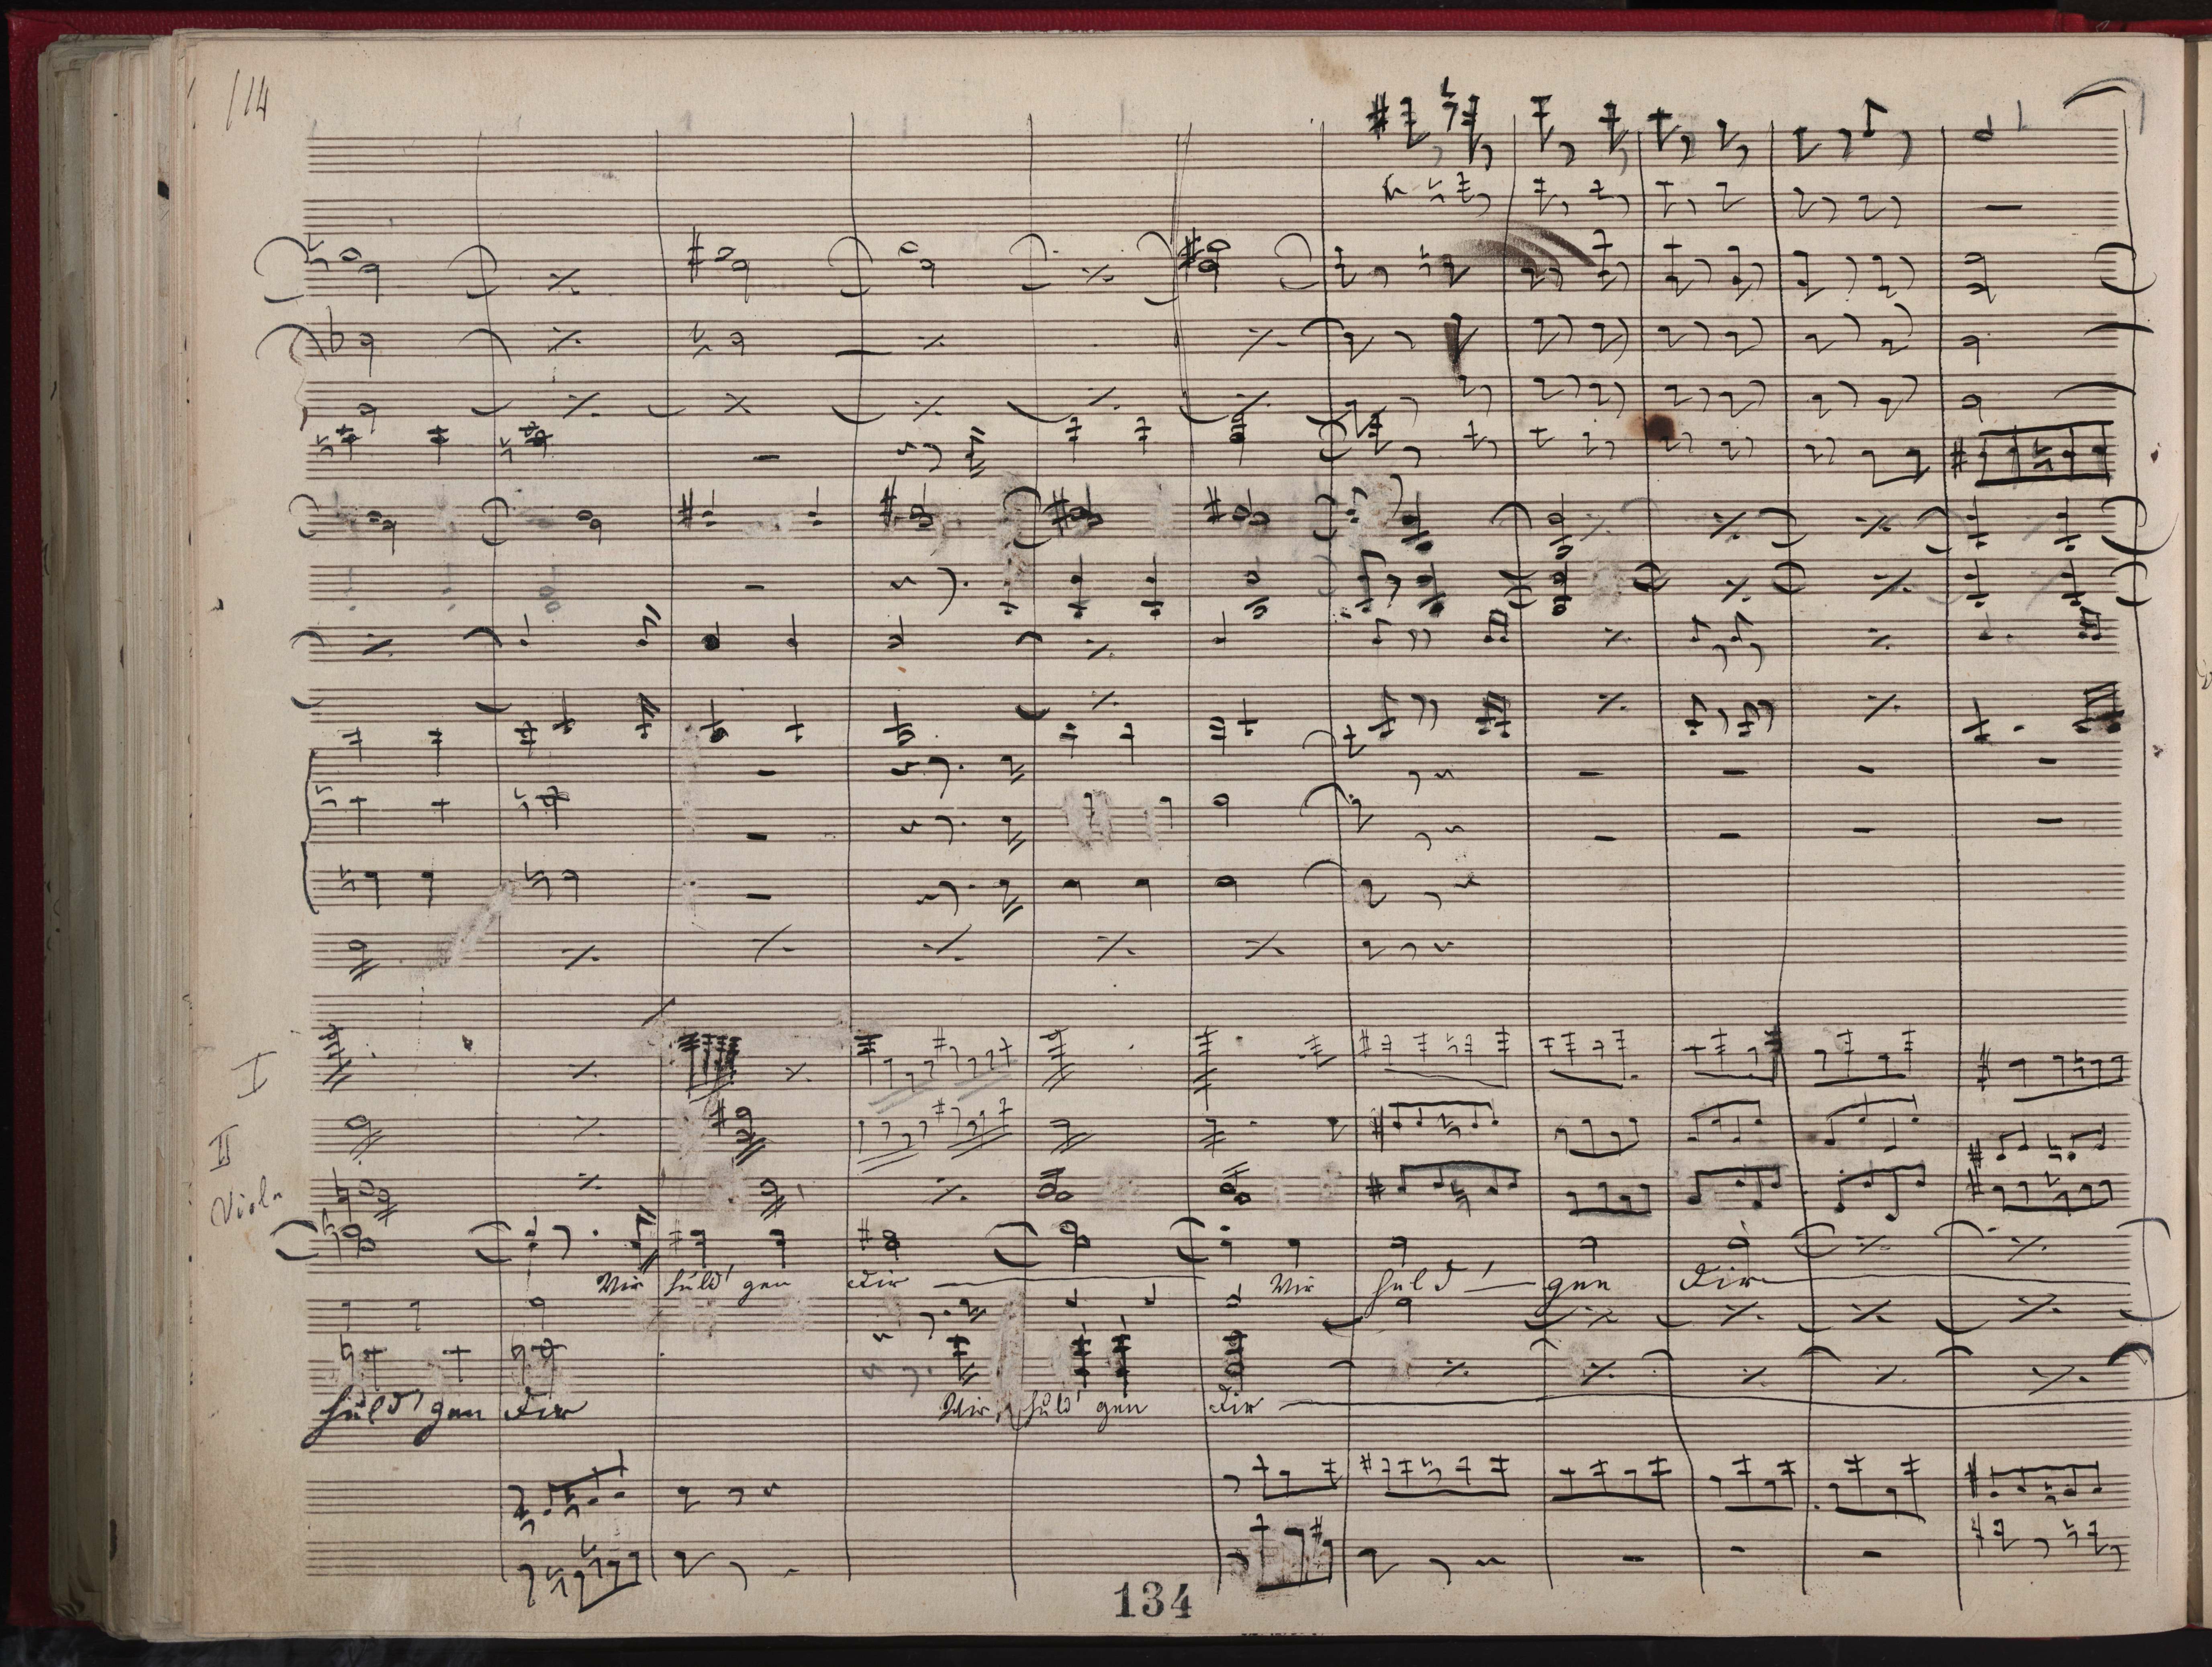 114
I
II
Viola
Wir huld' gen Dir Wir huld' gen Dir
huld' gen Dir Wir huld' gen Dir
134